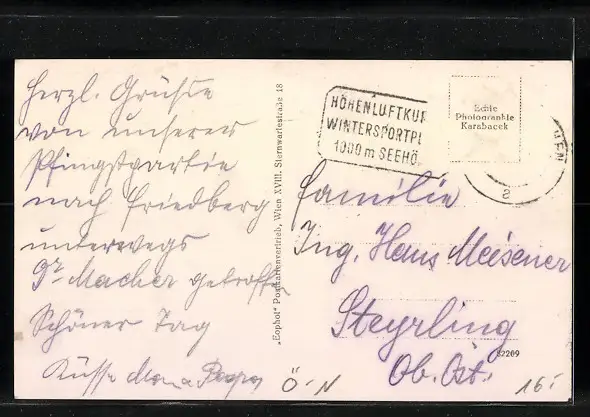 Herzl. Grüße
von unserer
Pfingstpartie
nach Friedberg
unterwegs
Dr. Macher getroffen
Schöner Tag
Küsse Mama Papa
„Eophot" Postkartenvertrieb, Wien XVIII, Sternwartestraße 18
HÖHENLUFTKUR
WINTERSPORTPL
1000 m SEEHÖ
Echte
Photographie
Karabacek
2
Familie
Ing. Hans Meisener
Steyrling
Ob. Öst.
52209
Ö-N
16:-